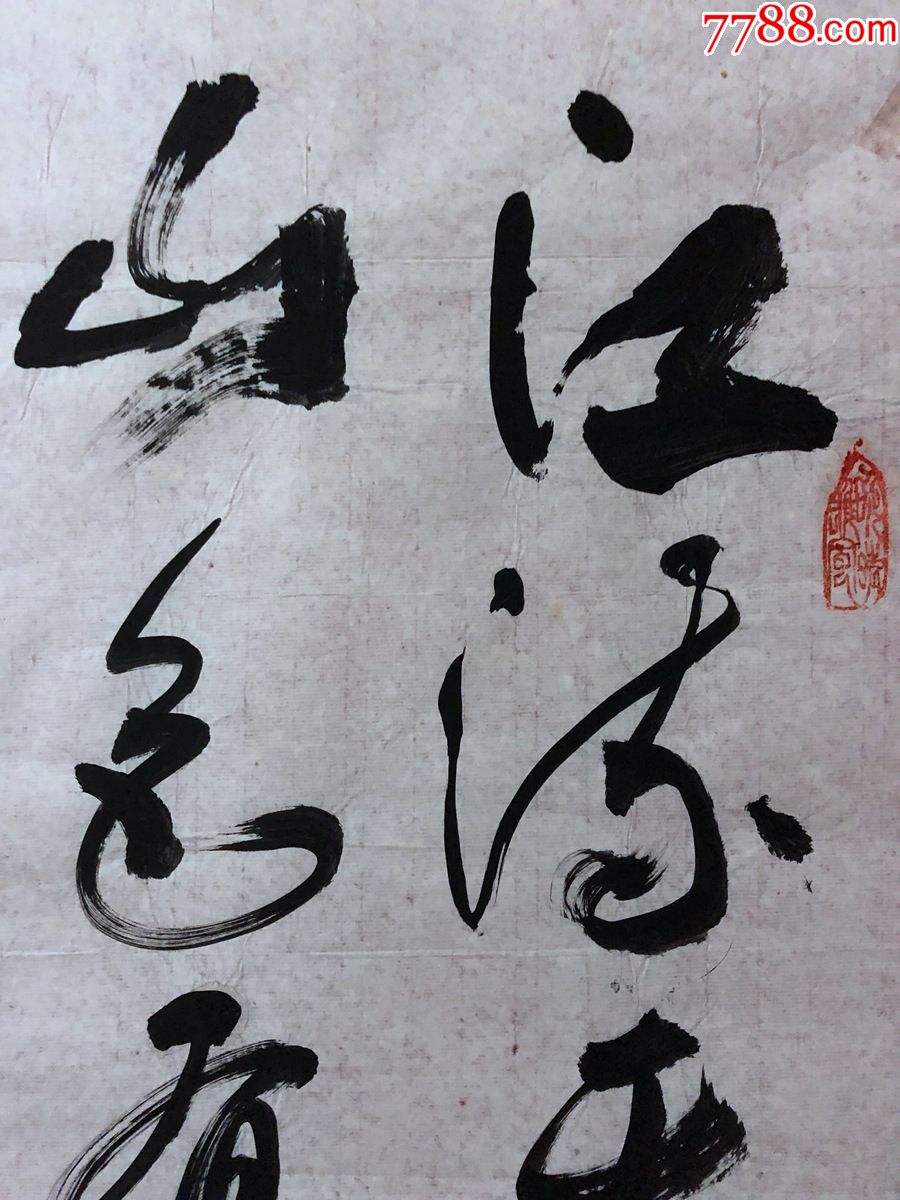 7788.com
江流天
山色有